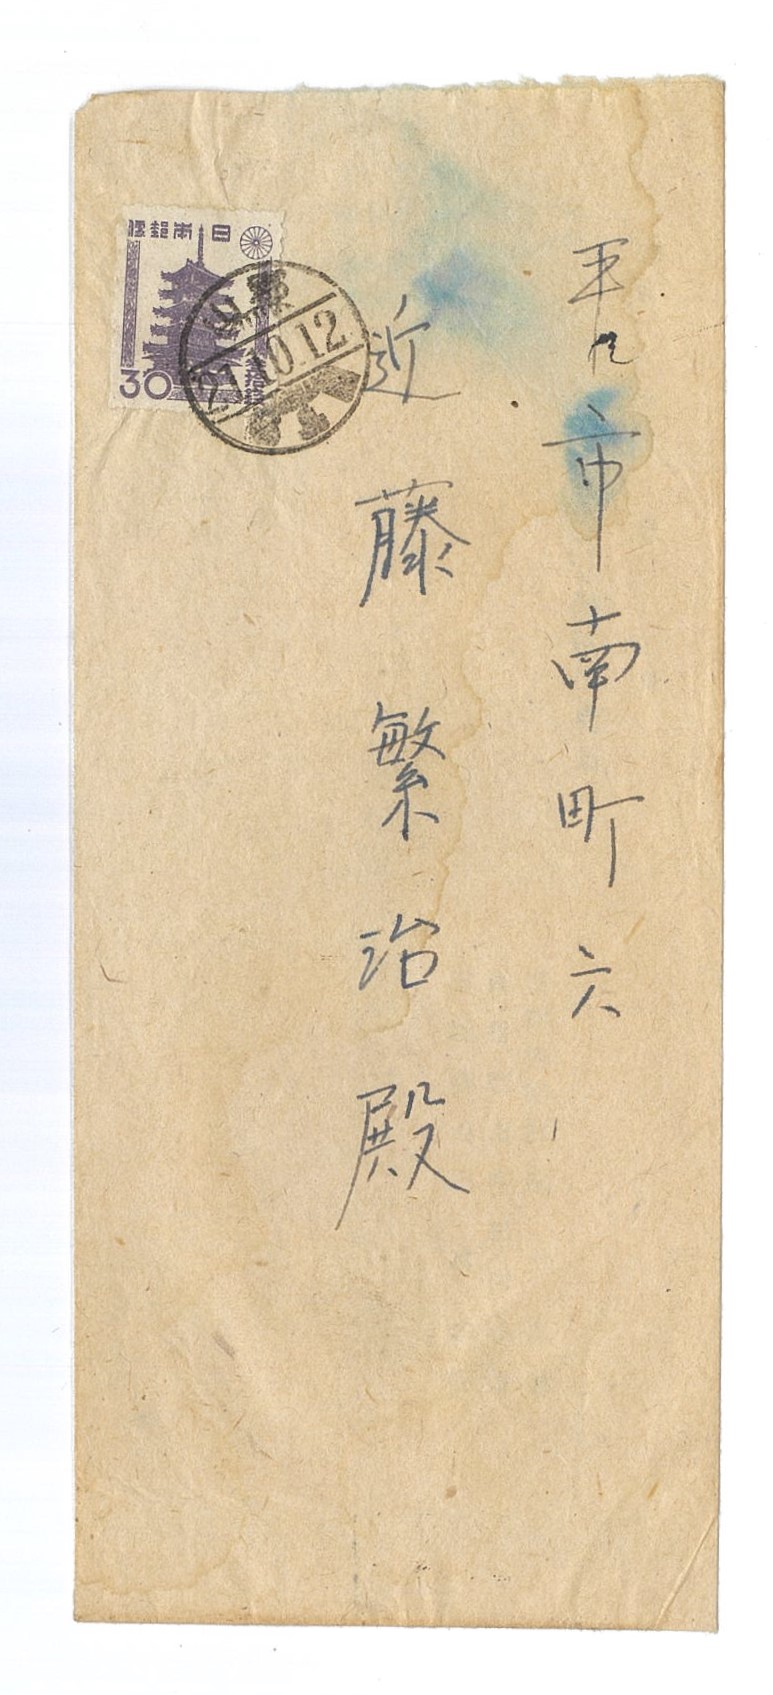 平市南町六
近藤繁治殿
日本郵便
30
郡山
21.10.12